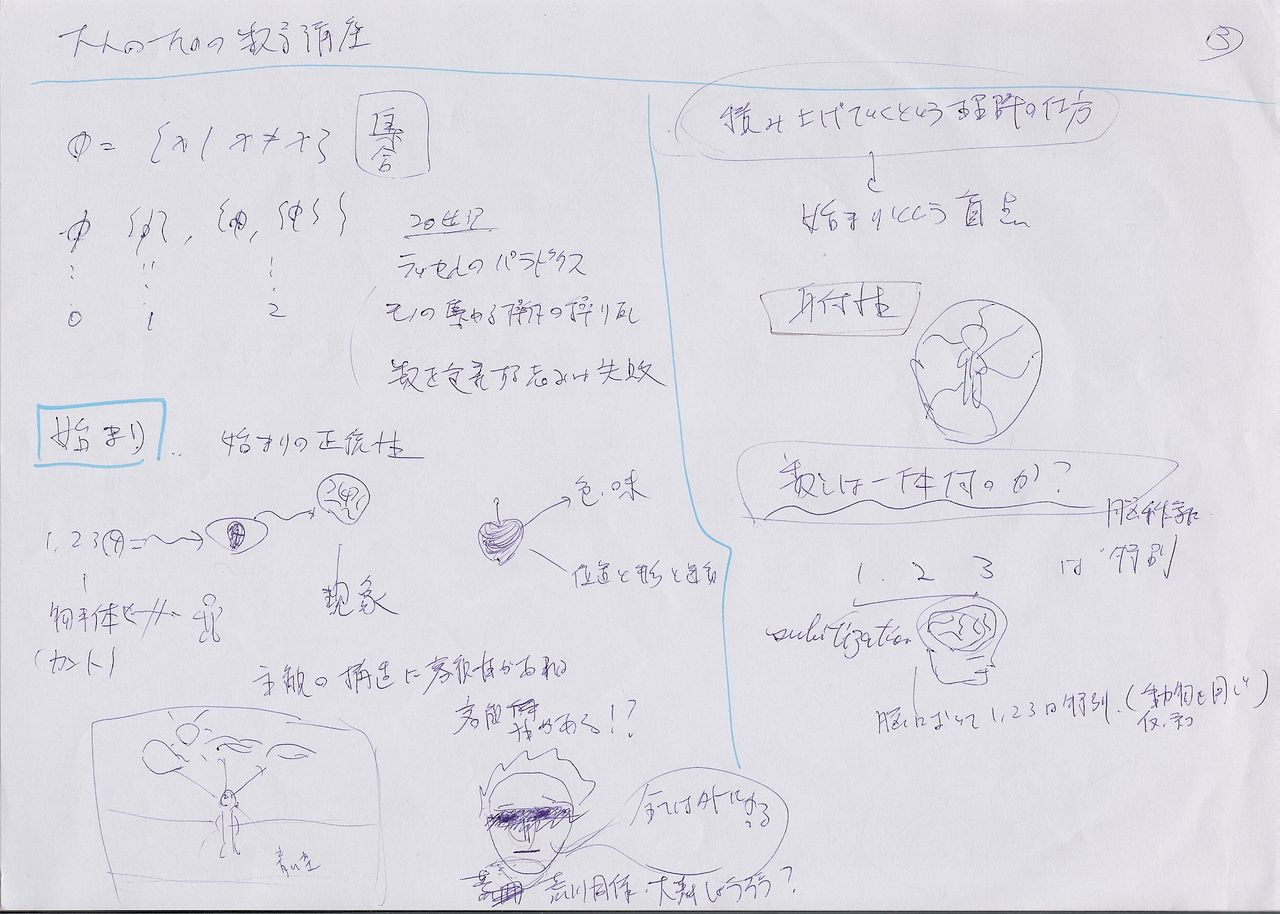 大人のための数学講座
③
φ = {x | x ≠ x}
集合
φ {φ}, {φ, {φ}}
0 1 2
20世紀
ラッセルのパラドクス
数を定義する試み失敗
始まり
始まりの正統性
1, 2, 3
現象
物自体
(カント)
色・味
位置と形と
主観の構造に客観性があれば
客観性がある!?
青い空
全ては外にある
荒川
積み上げていくという理解の仕方
始まりという盲点
身体性
数とは一体何なのか?
脳科学
1. 2 3 は特別
subitization
脳において1,2,3は特別. (動物も同じ